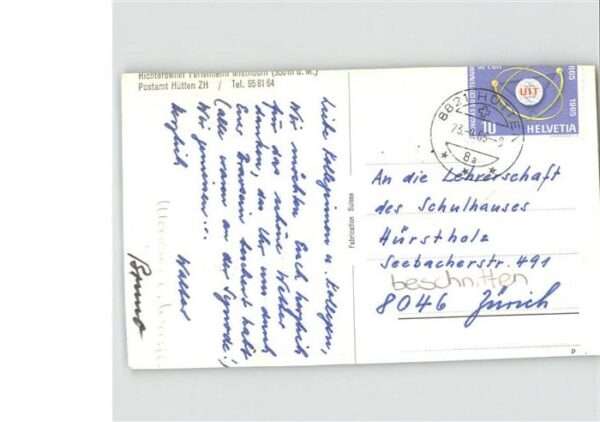 Richterswiler Ferienheim
Postamt Hütten ZH / Tel. 95 81 64
Liebe Kolleginnen u. Kollegen,
Wir möchten Euch herzlich
für das schöne Wetter
danken, das Ihr uns durch
Eure Bravsein
(alle waren an der Synode!)
Wir geniessen...
Herzlich
Walter
Bruno
Fabrication Suisse
1865
1965
UIT
10
HELVETIA
8821 HÜTTEN
8a
An die Lehrerschaft
des Schulhauses
Hürstholz
Seebacherstr. 491
beschnitten
8046 Zürich